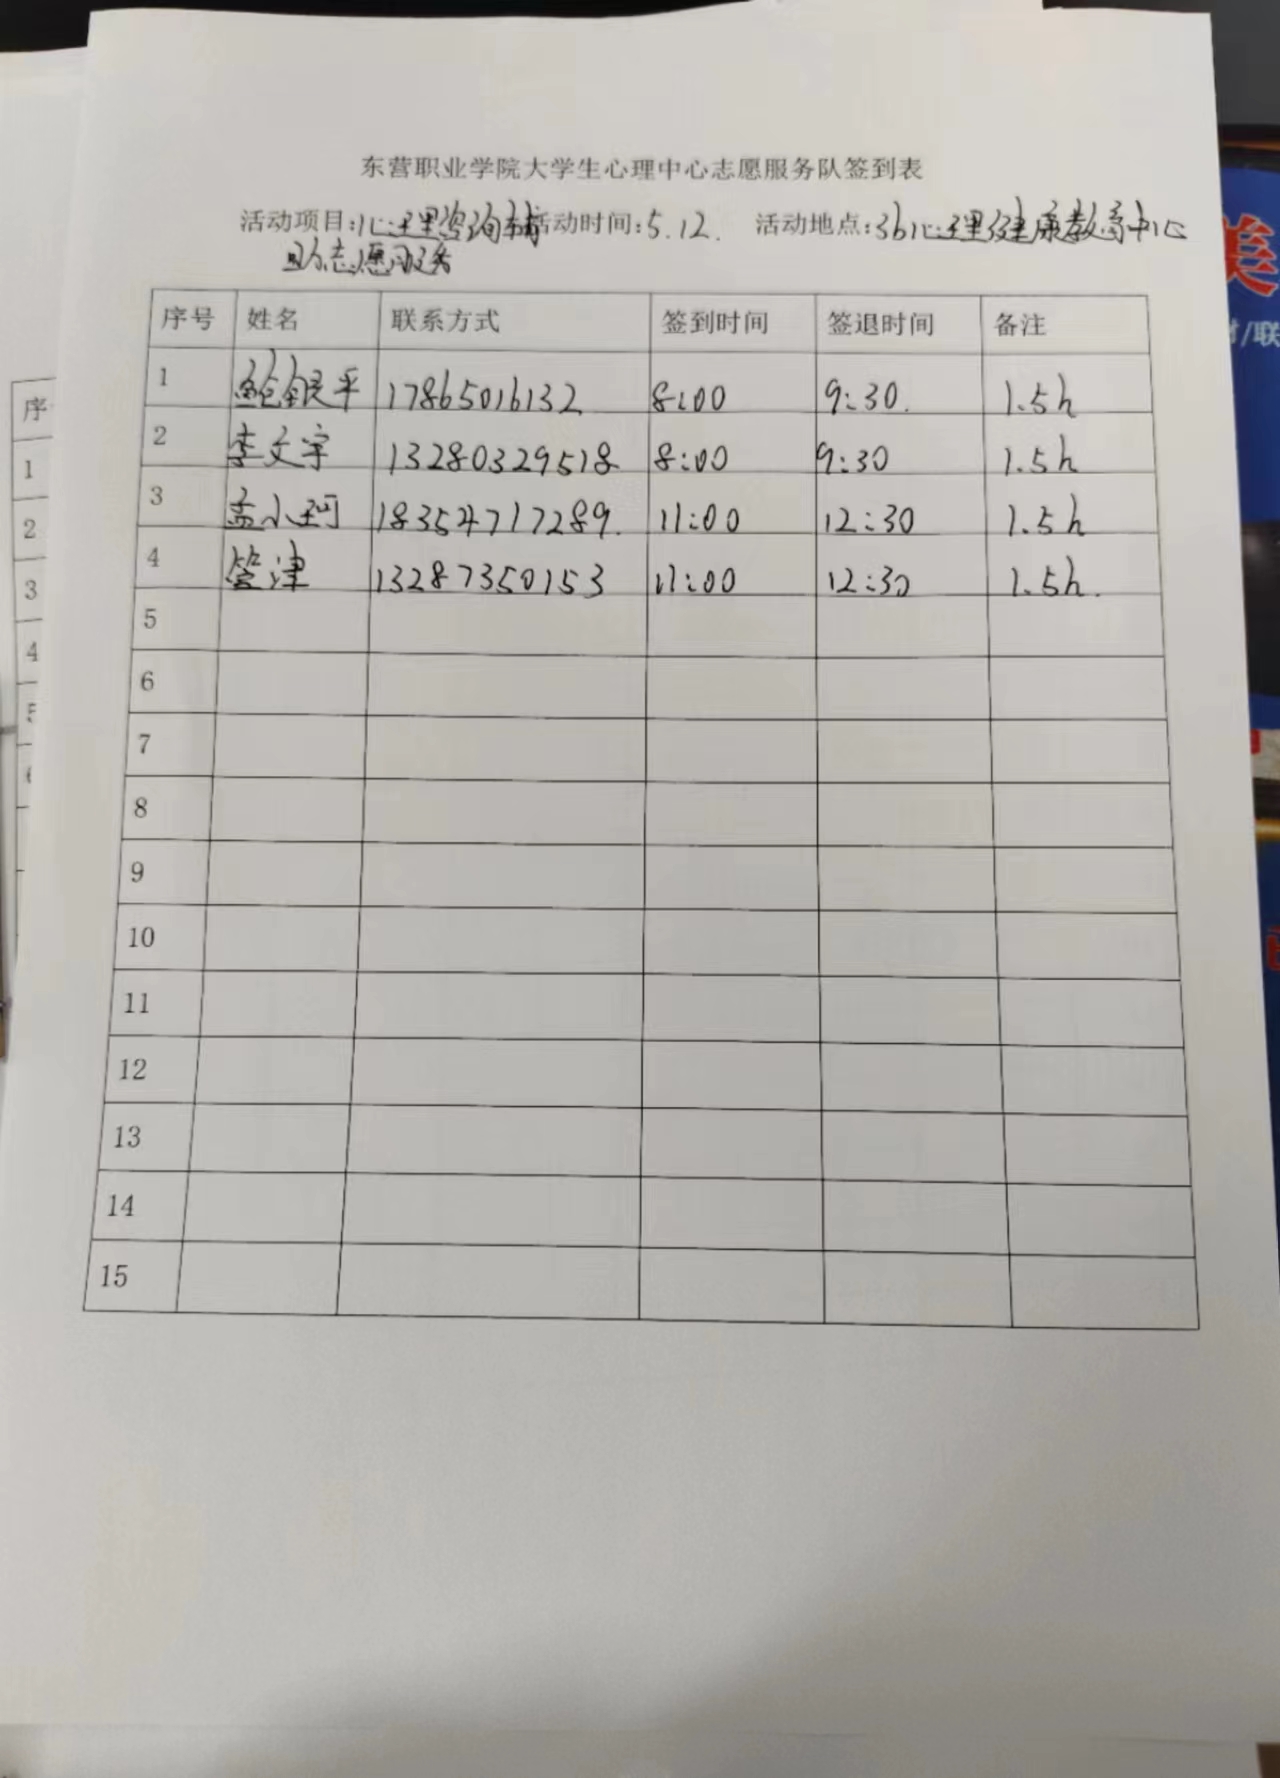 东营职业学院大学生心理中心志愿服务队签到表
活动项目:心理咨询辅 活动时间:5.12. 活动地点:3b心理健康教育中心
助志愿服务
序号 姓名 联系方式 签到时间 签退时间 备注
1 鲍银平 17865016132 8:00 9:30. 1.5h
2 李文宇 13280329518 8:00 9:30 1.5h
3 孟小珂 18354717289. 11:00 12:30 1.5h
4 管津 13287350153 11:00 12:30 1.5h.
5
6
7
8
9
10
11
12
13
14
15
序
1
2
3
4
5
6
美
/联